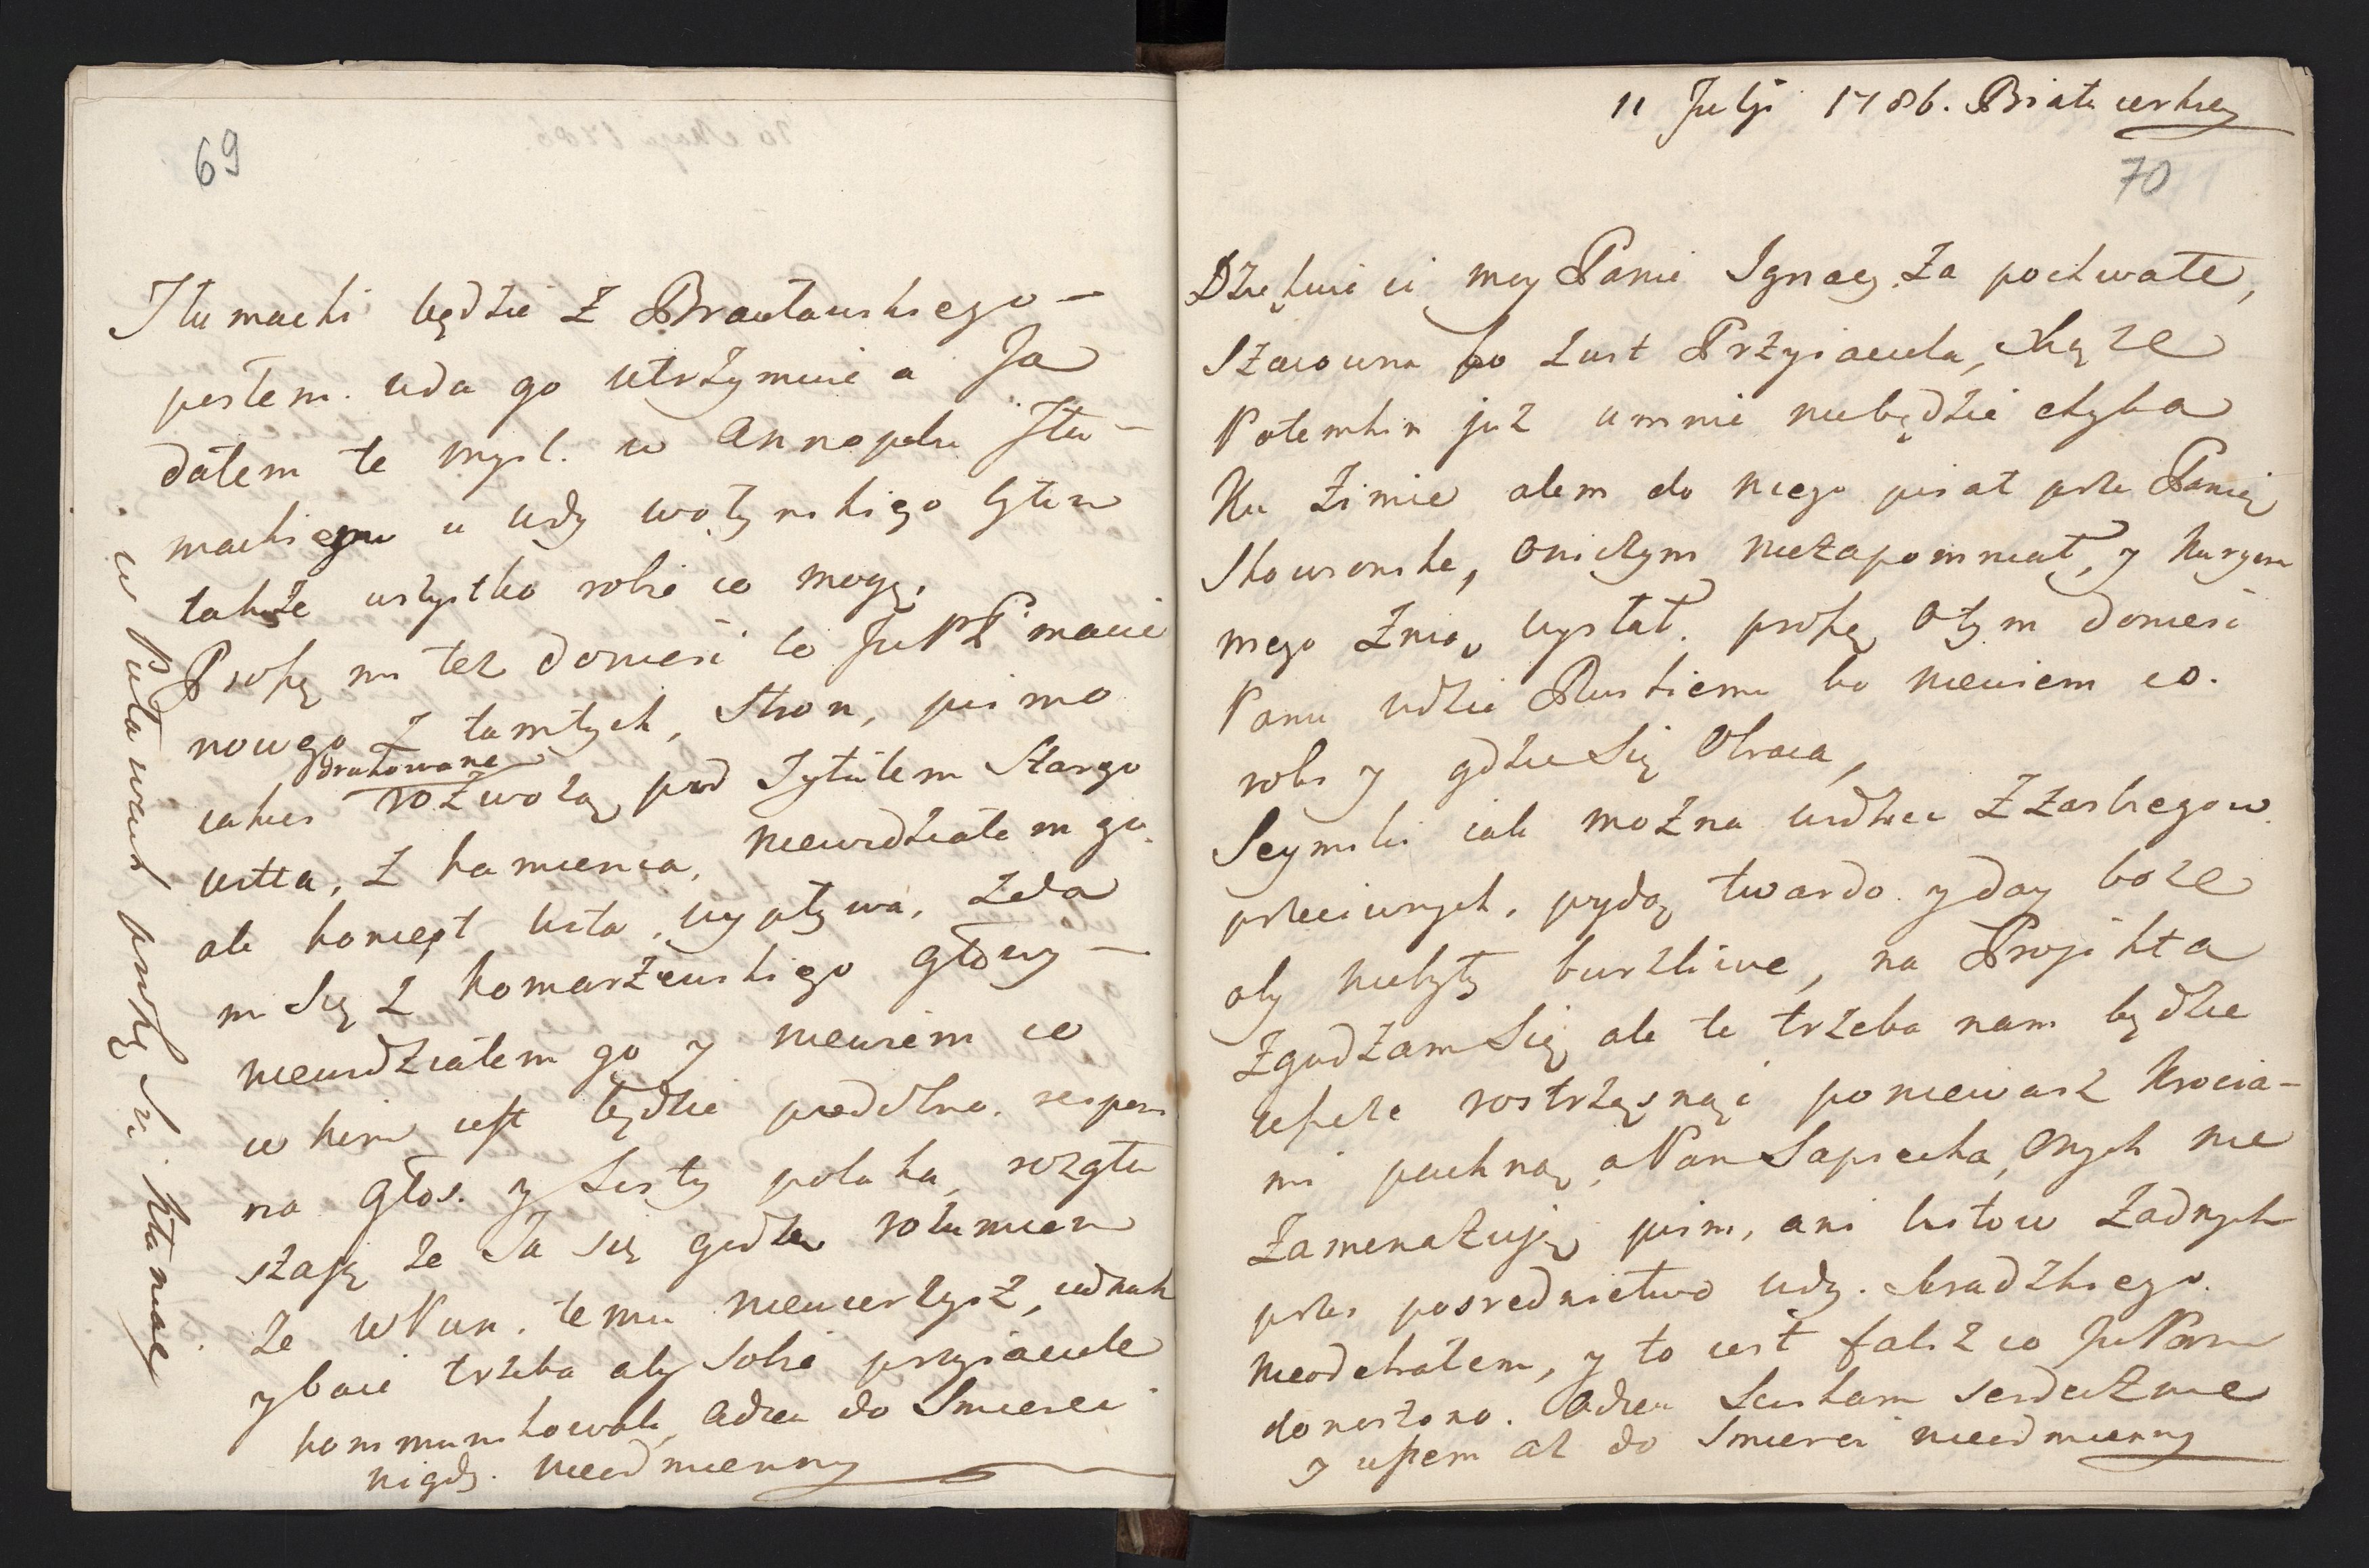 69
Tłumacki będzie z Bracławskiego —
posłem. uda go utrzymuie a Ja
dałem te mysl. w Annopolu Tłu-
mackiemu u wdy wołynskiego Głem
takze wszystko robie co mogę.
Proszę mi tez doniesć co JWP. macie
nowego z tamtych stron, pismo
iakies drukowane rozwożą pod Tytułem Starego
ustta, z kamienia, niewidziałem go
ale koncept usta wypływa, zda
mi się z komarzewskiego głowy —
niewidziałem go y niewiem co
w nim iest będzie podobno. respons
na głos. y Listy polaka, rozgła
szaią ze Ja się godze rozumiem
ze WPan. temu niewierzysz, iednak
y baie trzeba aby sobie przyiaciele
kommunikowali, adieu do smierci
nigdy. nieodmienny
w Puławach proszę się kłaniać
11 Julji 1786. Biała cerkiew
70
Dziękuie ci moy Panie Ignacy za pochwałe,
szacowna bo z ust Przyiaciela, Xiąze
Potemkin już u mnie niebędzie chyba
Ku Zimie alem do niego pisał prze Panią
Skowronske, o niczym niezapomniał, y kuryera
mego znią wysłał. proszę o tym doniesć
Panu wdzie Ruskiemu bo niewiem co.
robi y gdzie się obraca,
Seymiki iak można widziec z zasbiegow
przeciwnych, poydą twardo. y day boze
aby niebyły burzliwe, na Projekta
zgadzam się ale te trzeba nam będzie
ieszcze rostrząsnąć poniewasz krocia-
mi pachną, a Pan Sapiecha, onych nie
zamenażuję pism, ani listow żadnych
przes posrednictwo wdy. Sieradzkiego.
nieodebrałem, y to iest fałsz co JWPanu
doniesiono. Adieu Sciskam serdecznie
y iestem aż do Smierci nieodmienny